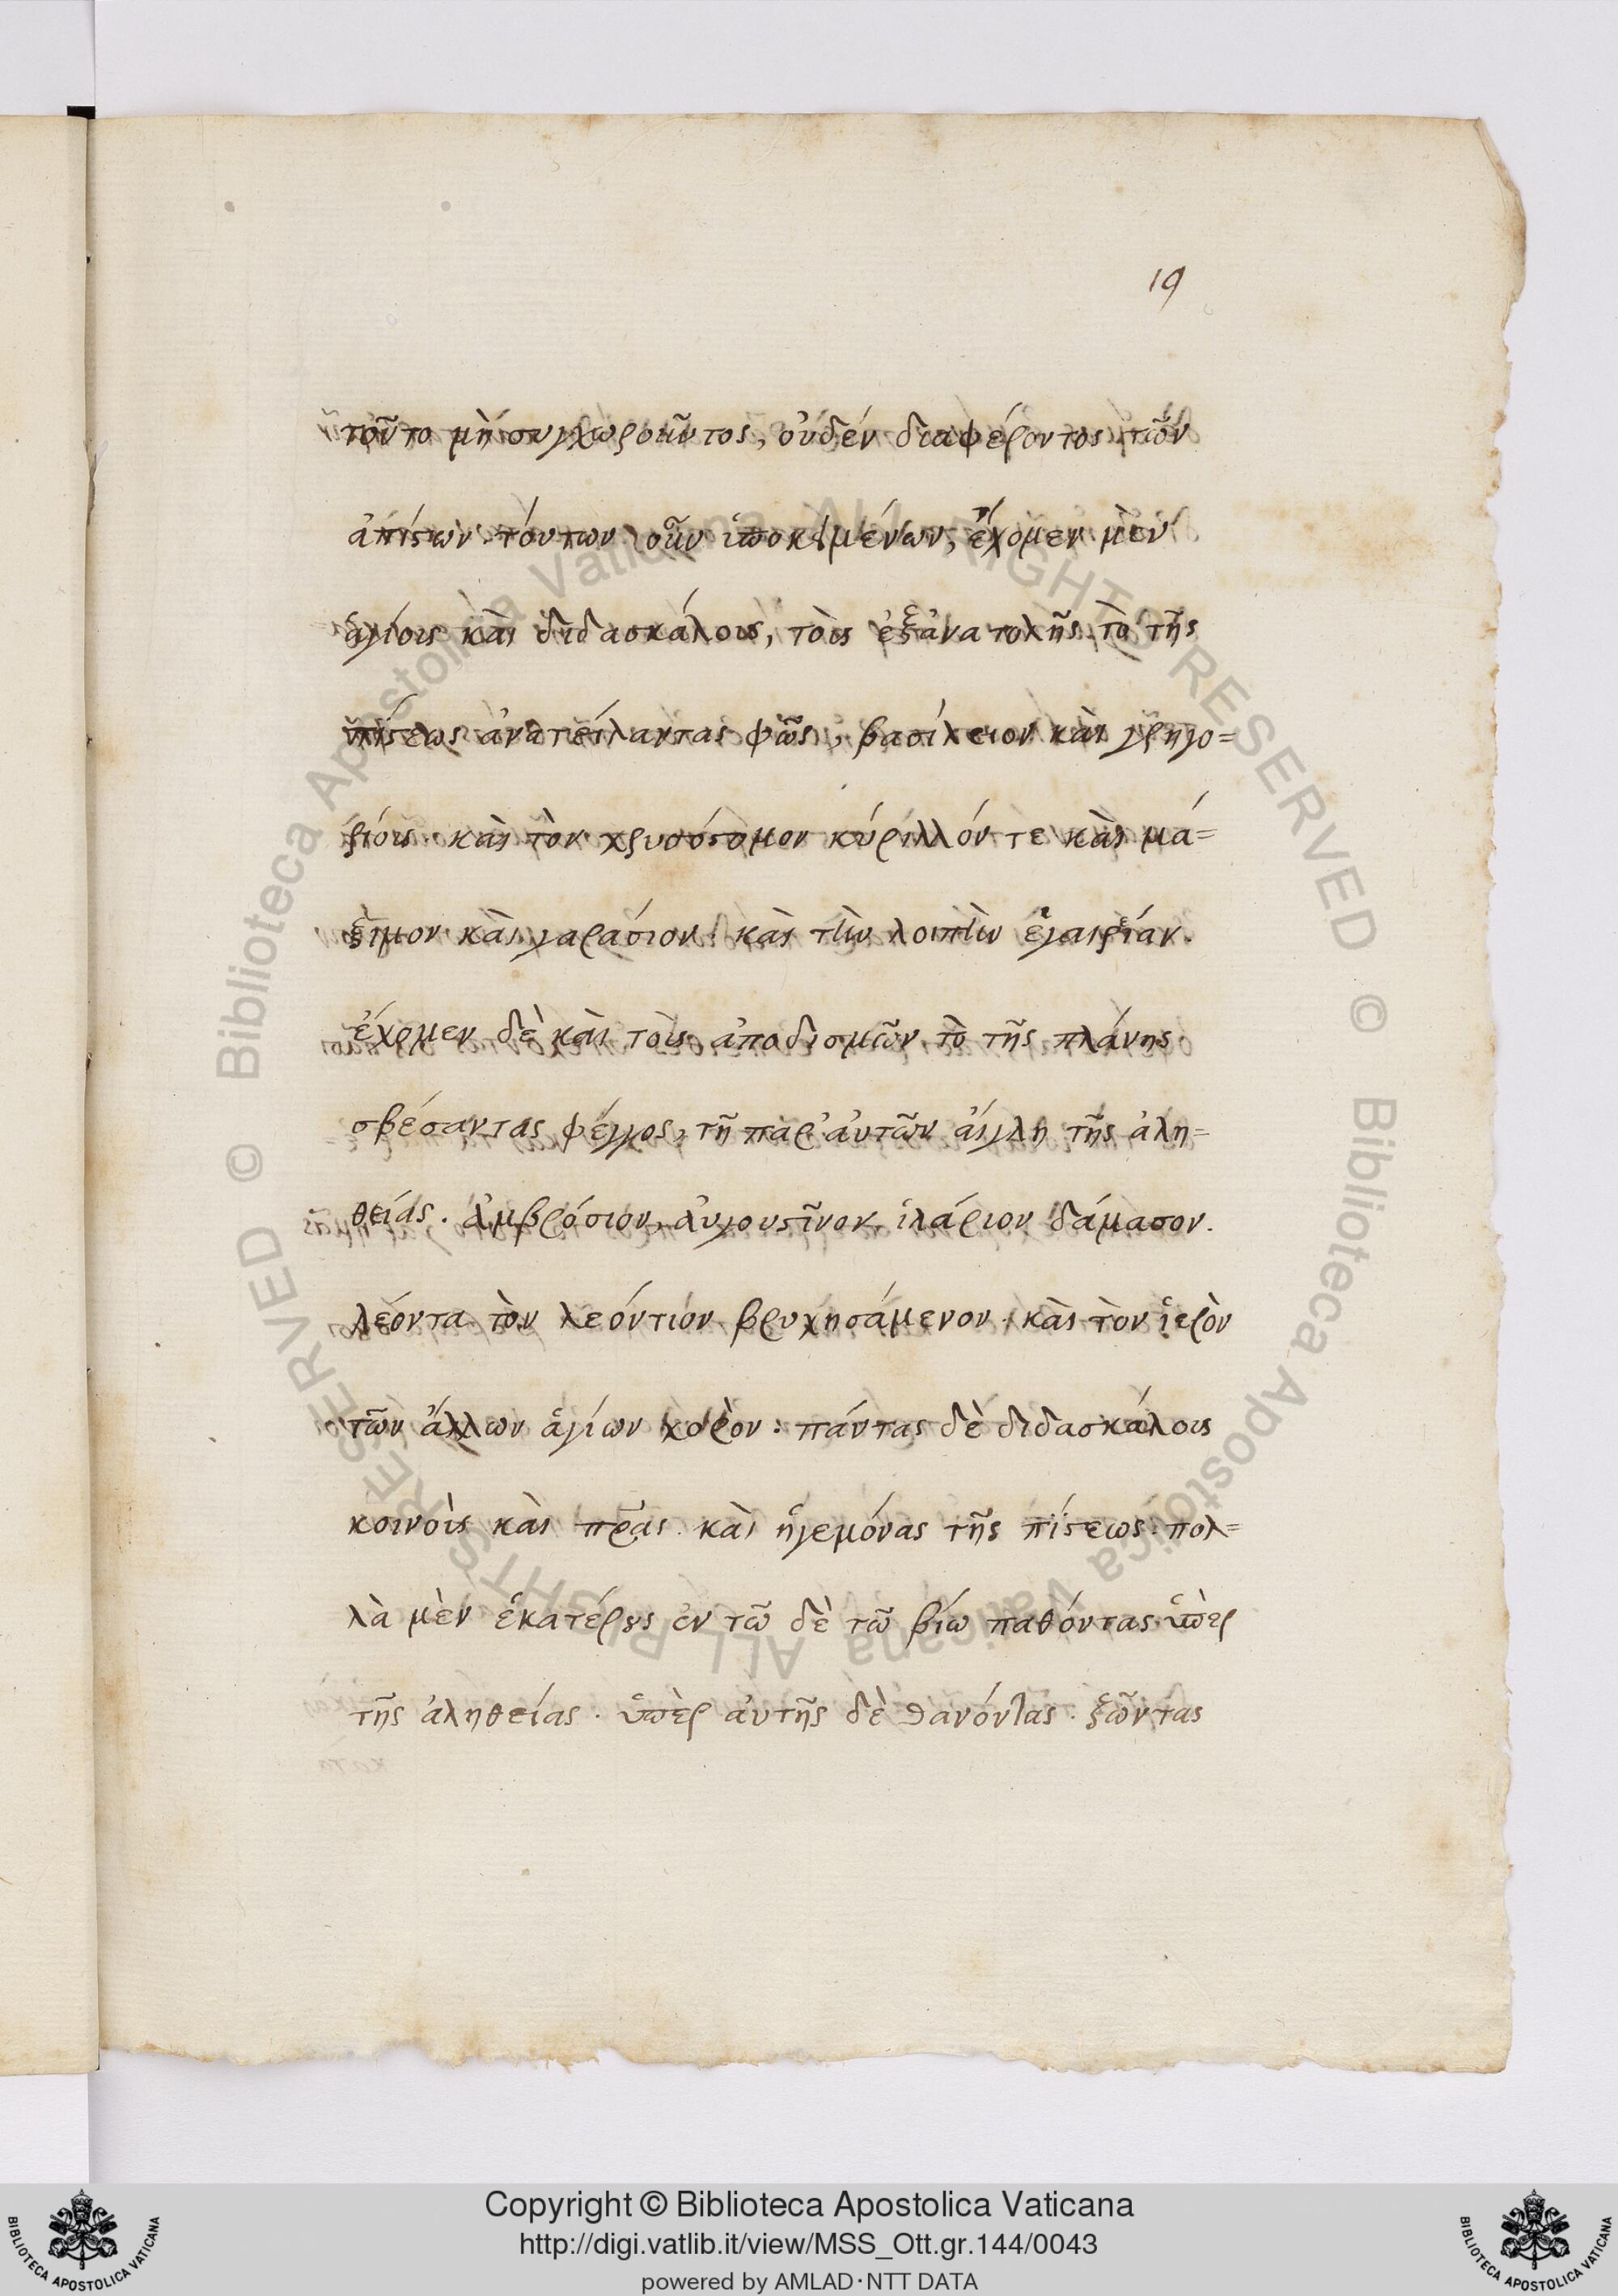 19
τοῦτο μὴ συγχωροῦντος, οὐδὲν διαφέροντος τῶν
ἀπίστων. τούτων οὖν ὑποκειμένων, ἔχομεν μὲν
ἁγίους καὶ διδασκάλους, τοὺς ἐξ ἀνατολῆς τὸ τῆς
πίστεως ἀνατείλαντας φῶς, βασίλειον καὶ γρηγο=
ρίους· καὶ τὸν χρυσόστομον κύριλλόν τε καὶ μά=
ξιμον καὶ ταράσιον· καὶ τὴν λοιπὴν
ἔχομεν δὲ καὶ τοὺς ἀπὸ δυσμῶν τὸ τῆς πλάνης
σβέσαντας φέγγος, τῆ παρ' ἀυτῶν ἀίγλη τῆς ἀλη=
θείας. ἀμβρόσιον, ἀυγουστῖνον, ἱλάριον δάμασον.
λέοντα τὸν λεόντιον βρυχησάμενον· καὶ τὸν ἱερὸν
τῶν ἄλλων ἁγίων χορὸν: πάντας δὲ διδασκάλους
κοινοὺς καὶ πρ̅ας· καὶ ἡγεμόνας τῆς πίστεως· πολ=
λὰ μὲν ἑκατέρους ἐν τῶ δὲ τῶ βίω παθόντας ὑπὲρ
τῆς ἀληθείας· ὑπὲρ ἀυτῆς δὲ θανόντας· ζῶντας
Copyright © Biblioteca Apostolica Vaticana
http://digi.vatlib.it/view/MSS_Ott.gr.144/0043
powered by AMLAD·NTT DATA
BIBLIOTECA APOSTOLICA VATICANA
BIBLIOTECA APOSTOLICA VATICANA
© Biblioteca Apostolica Vaticana ALL RIGHTS RESERVED © Biblioteca Apostolica Vaticana ALL RIGHTS RESERVED